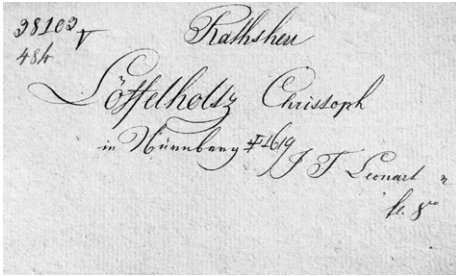 38102
484
Rathsherr
Löffelholtz Christoph
in Nürnberg ‡ 1619
J T Leonart
fl. 8º